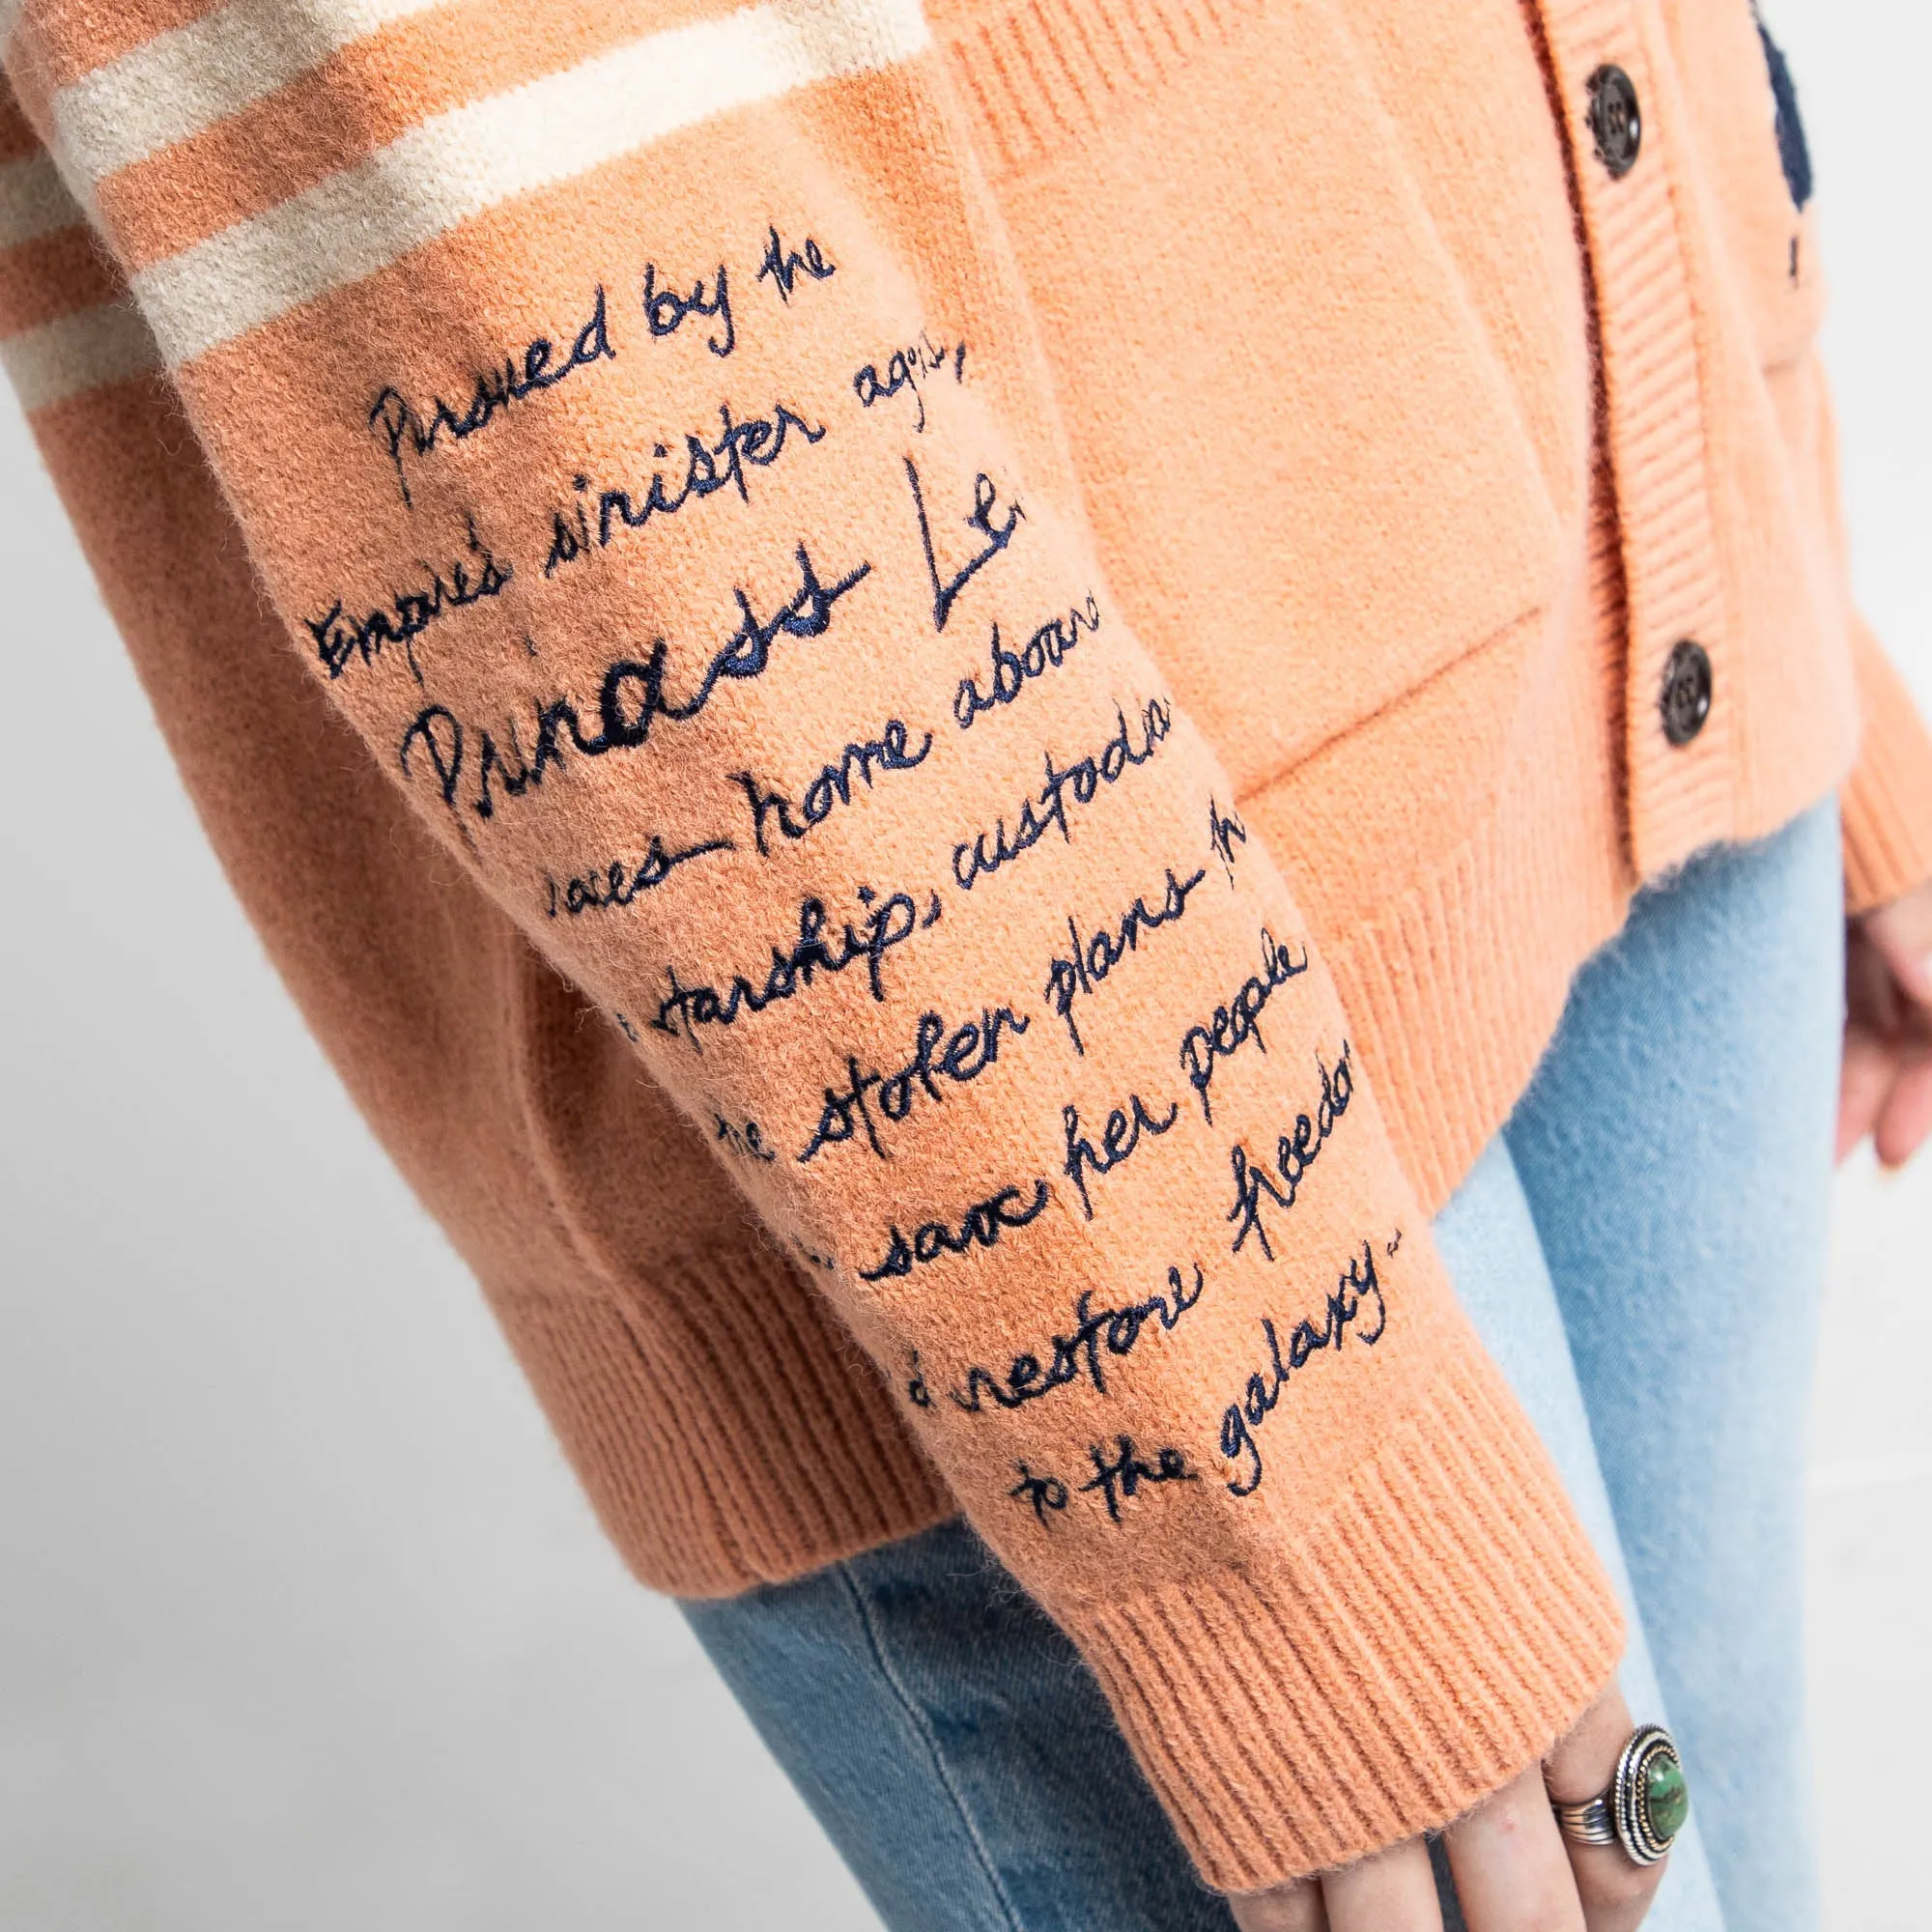 Pursued by the
Empire's sinister
Princess
races home
starship, custodia
the stolen plans
save her people
restore freedo
to the galaxy..